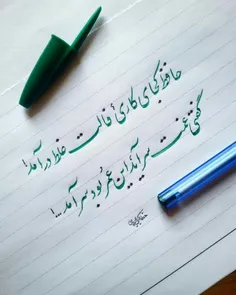 حافظ کجای کاری؟ فالت غلط درآمد!
گفتی غمت سرآید این عمر بود سرآمد...!